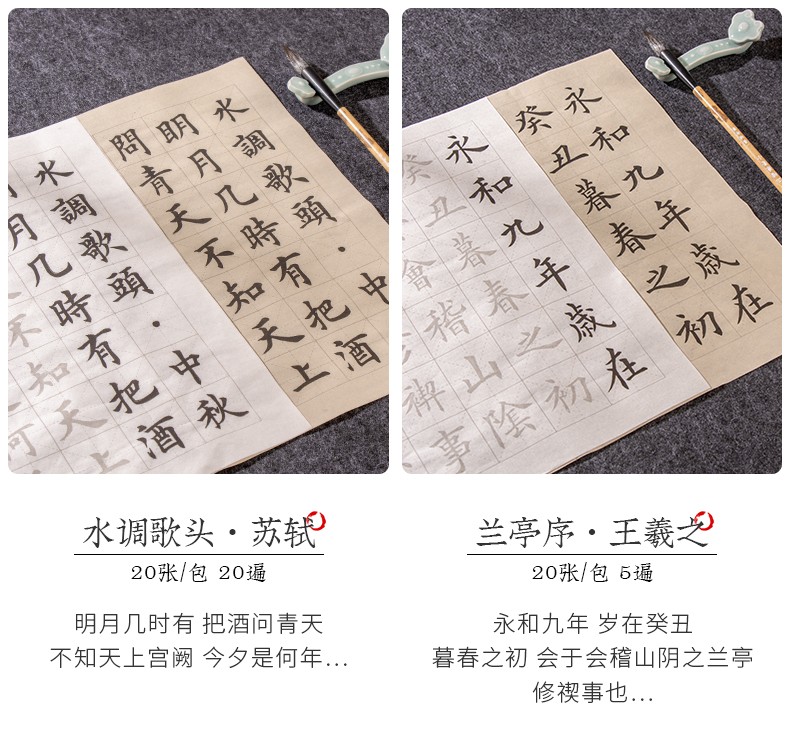 水調歌頭·中
明月几時有把酒
問青天不知天上
水調歌頭·中秋
月几時有把酒
不知天上
何
永和九年歲在
癸丑暮春之初
永和九年歲在
癸丑暮春之初
會稽山陰
禊事
水调歌头·苏轼
20张/包 20遍
明月几时有 把酒问青天
不知天上宫阙 今夕是何年...
兰亭序·王羲之
20张/包 5遍
永和九年 岁在癸丑
暮春之初 会于会稽山阴之兰亭
修禊事也...